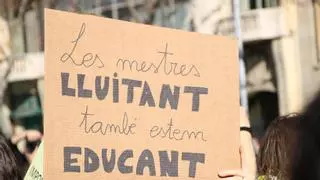 Les mestres
LLUITANT
també estem
EDUCANT